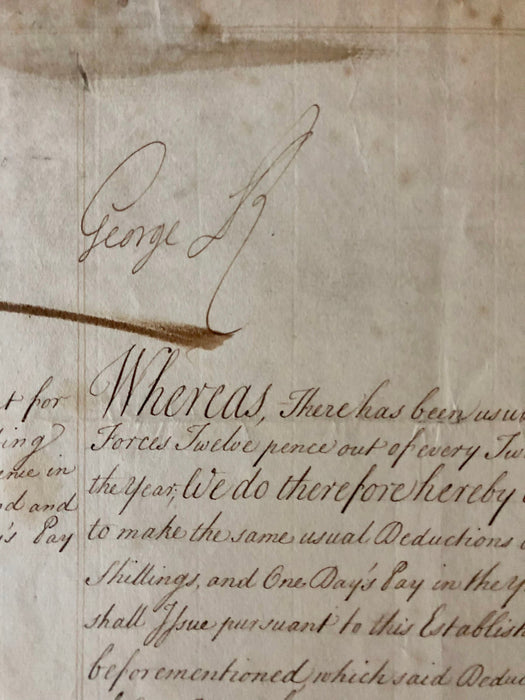 George R.
t for
ing
in
d and
's Pay
Whereas, There has been usu
Forces Twelve pence out of every Tw
the Year, We do therefore hereby
to make the same usual Deductions
Shillings, and One Day's Pay in the Y
shall Issue pursuant to this Establish
beforementioned, which said Deduc